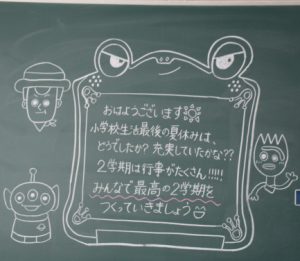 おはようございます
小学校生活最後の夏休みは、
どうでしたか? 充実していたかな??
2学期は行事がたくさん!!!!!
みんなで最高の2学期を
つくっていきましょう